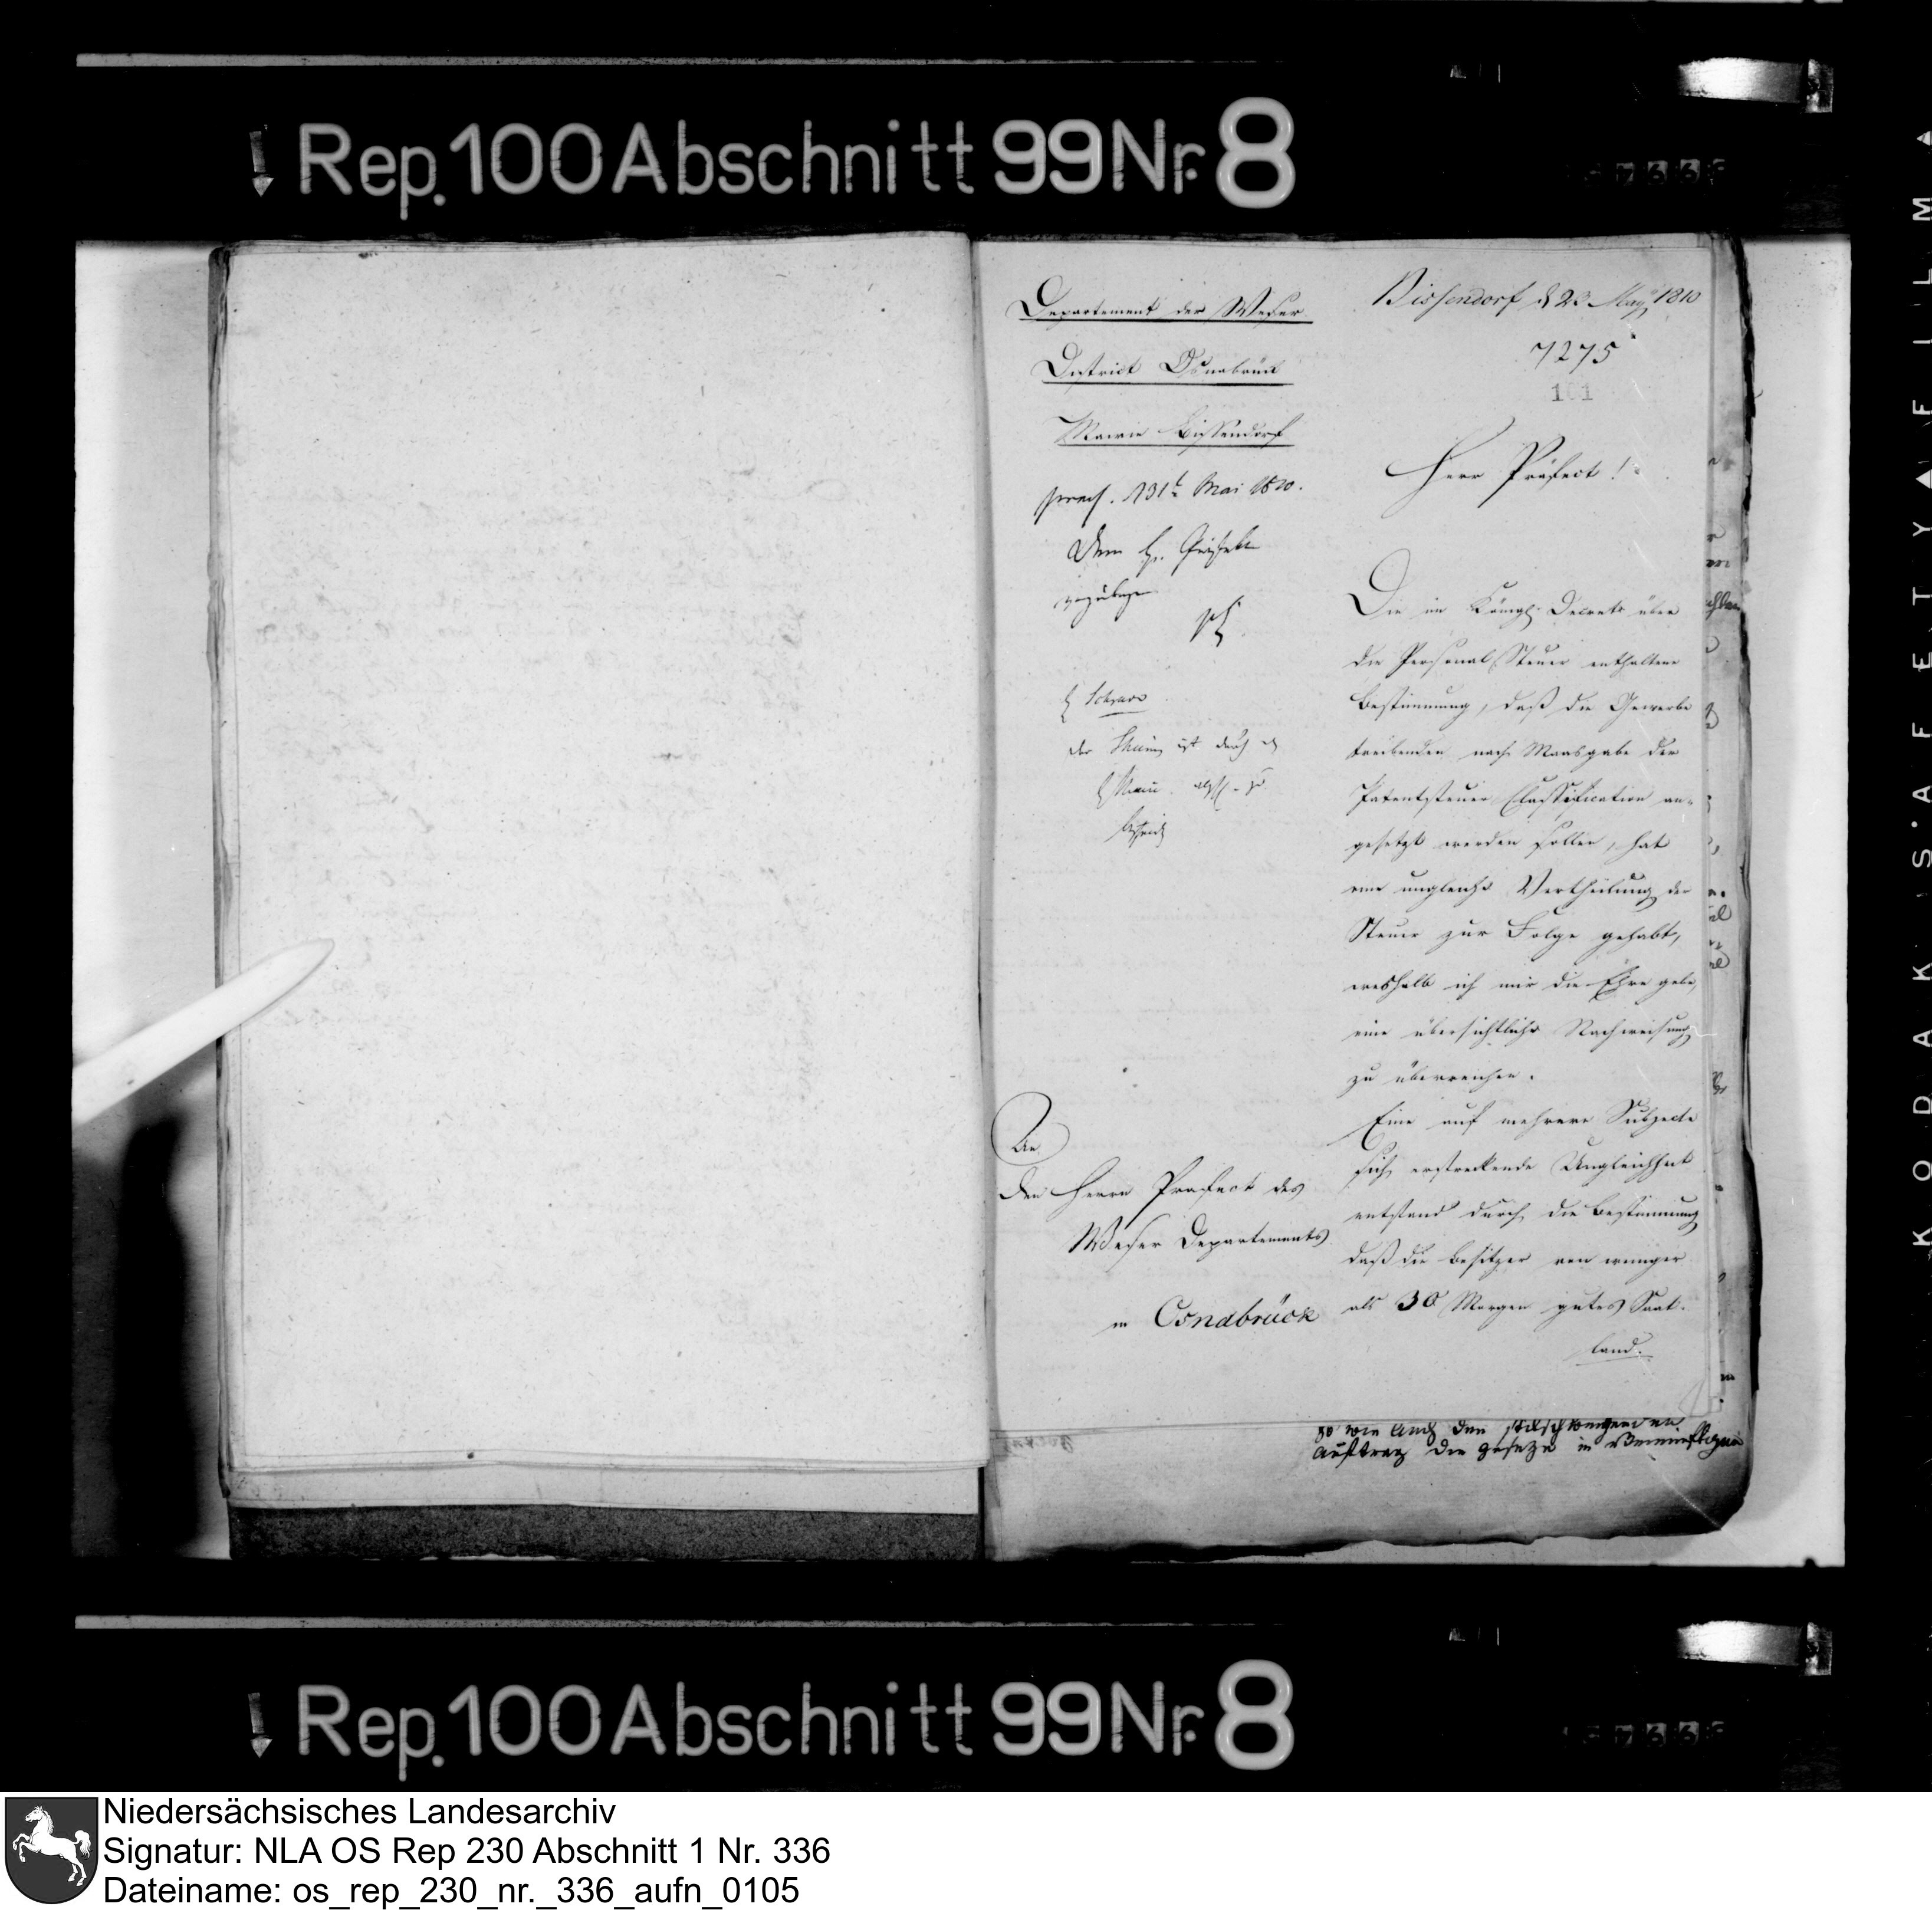 Rep. 100 Abschnitt 99 Nr. 8
Departement der Weser
District Osnabrück
Mairie Bissendorf
Bissendorf d 23 May 1810
7275
101
praes. 31t Mai 1810.
Dem H. Präfecten
vorzulegen
Herr Präfect!
Die im Königl. Decrete über
die Personal Steuer enthaltene
Bestimmung, daß die Gewerbe
treibenden nach Maasgabe der
Patentsteuer Classification an-
gesetzt werden sollen, hat
eine ungleiche Vertheilung der
Steuer zur Folge gehabt,
weshalb ich mir die Ehre gebe,
eine übersichtliche Nachweisung
zu überreichen.
Eine auf mehrere Subjecte
sich erstreckende Ungleichheit
entstand durch die Bestimmung
daß die Besitzer von weniger
als 30 Morgen gutes Saat-
land.
An
den Herrn Präfect des
Weser Departements
in Osnabrück
so wie auch den stillschweigenden
Auftrag die gesetze in
KODAK SAFETY FILM
Rep. 100 Abschnitt 99 Nr. 8
Niedersächsisches Landesarchiv
Signatur: NLA OS Rep 230 Abschnitt 1 Nr. 336
Dateiname: os_rep_230_nr._336_aufn_0105